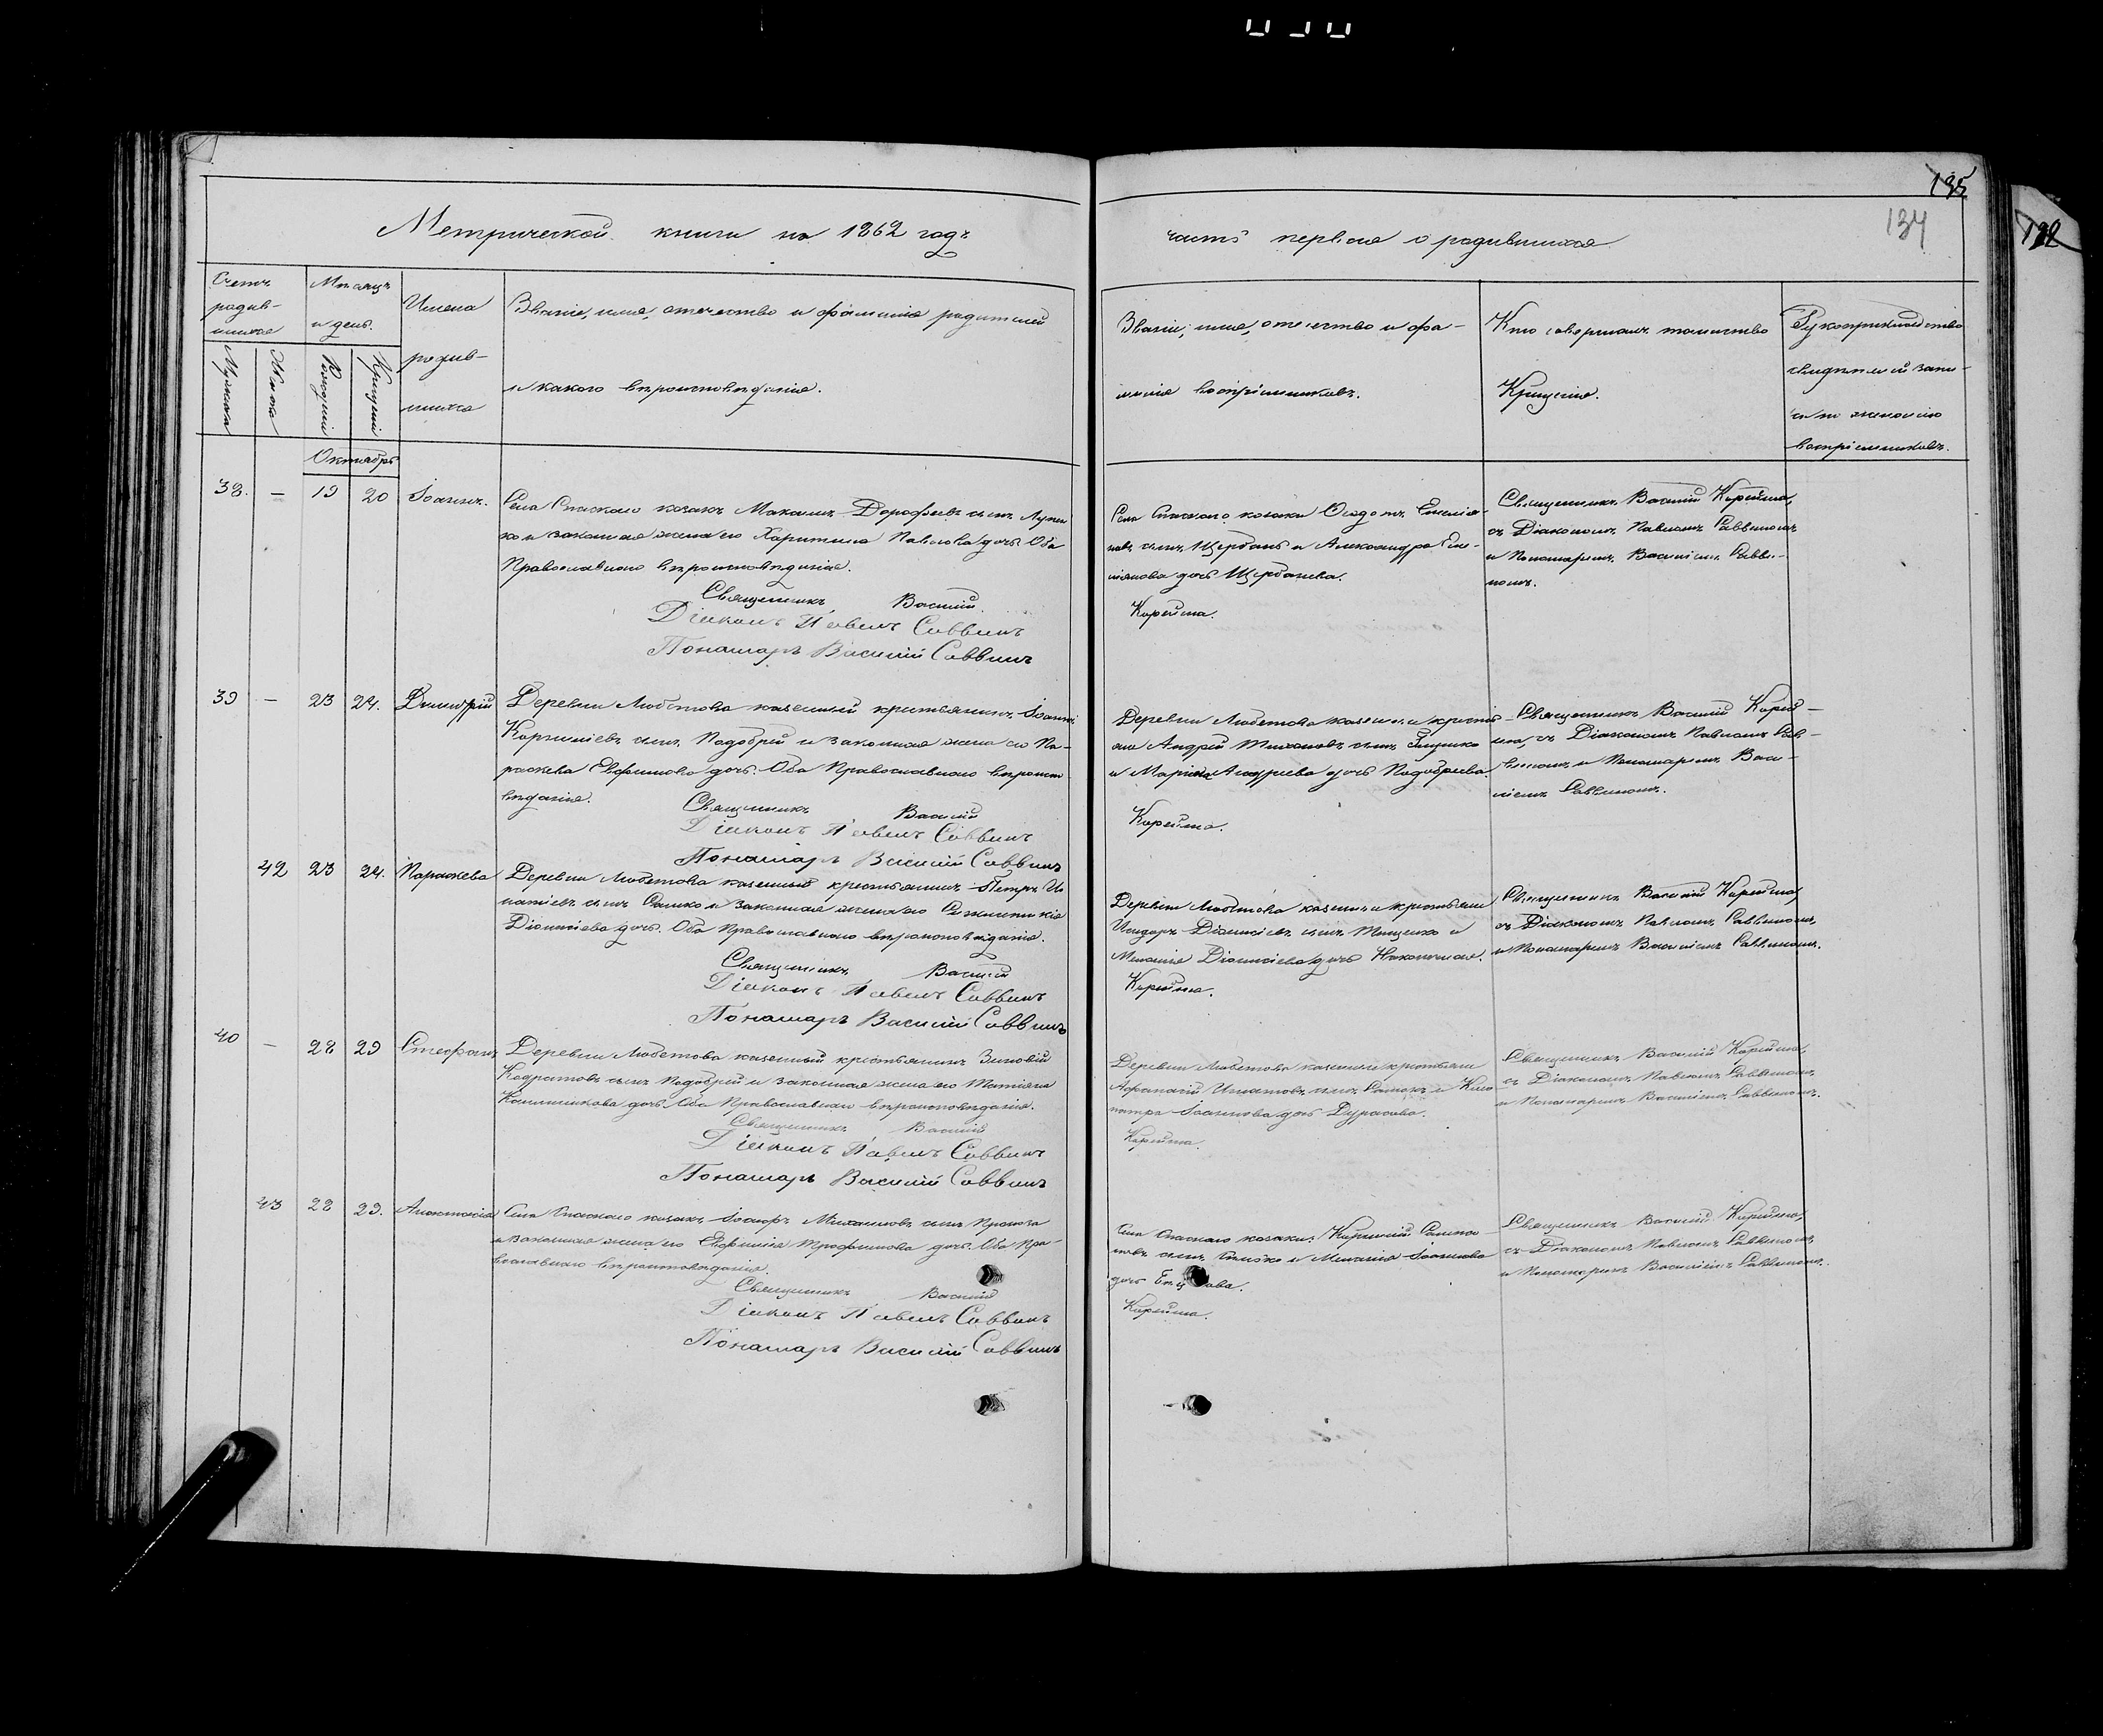 135
134
132
Метрической книги на 1862 годъ
часть первая о родившихся
Счетъ родив-
шихся
Мужска
Женска
Мѣсяцъ
и день.
Рожденія
Крещенія
Имена
родив-
шихся
Званіе, имя, отечество и фамилія родителей
и какого вѣроисповѣданія.
Званіе, имя, отечество и фа-
милія воспріемниковъ.
Кто совершалъ таинство
Крещенія.
Рукоприкладство
свидѣтелей запи-
си по желанію
воспріемниковъ.
Октябрь
38. — 19 20 Іоаннъ.
Села Спаскаго козакъ Макаръ Дорофеевъ сынъ
и законная жена его Харитина Павлова дочь. Оба
Православнаго вѣроисповѣданія.
Священникъ Василій
Діаконъ Павелъ Саввинъ
Понамарь Василій Саввинъ
Села Спаскаго козаки Ѳеодотъ Емелія-
новъ сынъ Щербань и Александра Еме-
ліянова дочь Щербанева.
Корейша.
Священникъ Василій Корейша,
съ Діакономъ Павломъ Саввиномъ
и Пономаремъ Василіемъ Савви-
номъ.
39 — 23 24. Димитрій
Деревни Любитова казенный крестьянинъ Іоаннъ
Корниліевъ сынъ Подобрей и законная жена его Па-
раскева Евфимова дочь. Оба Православнаго вѣроиспо-
вѣданія.
Священникъ Василій
Діаконъ Павелъ Саввинъ
Понамарь Василій Саввинъ
Деревни Любитова казенные крестья-
не Андрей сынъ
и Марина Андреева дочь Подобреева.
Корейша.
Священникъ Василій Корей-
ша, съ Діакономъ Павломъ Сав-
виномъ и Пономаремъ Васи-
ліемъ Саввиномъ.
42 23 24. Параскева
Деревни Любитова казенный крестьянинъ Петръ Иг-
натіевъ сынъ Сашко и законная жена его
Діонисіева дочь. Оба Православнаго вѣроисповѣданія.
Священникъ Василій
Діаконъ Павелъ Саввинъ
Понамарь Василій Саввинъ
Деревни Любитова казенные крестьяне
Исидоръ Діонисіевъ сынъ Тищенко и
Меланія Діонисіева дочь
Корейша.
Священникъ Василій Корейша,
съ Діакономъ Павломъ Саввиномъ
и Пономаремъ Василіемъ Саввиномъ.
40 — 28 29 Стефанъ
Деревни Любитова казенный крестьянинъ Зиновій
Кодратовъ сынъ Подобрей и законная жена его Татіана
дочь. Оба Православнаго вѣроисповѣданія.
Священникъ Василій
Діаконъ Павелъ Саввинъ
Понамарь Василій Саввинъ
Деревни Любитова казенные крестьяне
Афанасій Игнатовъ сынъ и Клео-
патра Іоаннова дочь Дурасова.
Корейша.
Священникъ Василій Корейша,
съ Діакономъ Павломъ Саввиномъ,
и Пономаремъ Василіемъ Саввиномъ.
43 28 29. Анастасія
Села Спаскаго козакъ Іосифъ Михаиловъ сынъ
и законная жена его Евфимія Трофимова дочь. Оба Пра-
вославнаго вѣроисповѣданія.
Священникъ Василій
Діаконъ Павелъ Саввинъ
Понамарь Василій Саввинъ
Села Спаскаго козаки: Корнилій
сынъ и Меланія Іоаннова
дочь
Корейша.
Священникъ Василій Корейша,
съ Діакономъ Павломъ Саввиномъ,
и Пономаремъ Василіемъ Саввиномъ.